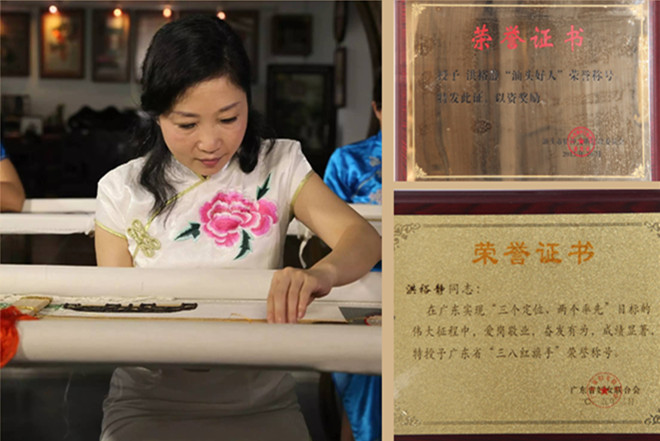 荣誉证书
授予 洪裕静“汕头好人”荣誉称号
特发此证，以资奖励
荣誉证书
洪裕静同志：
在广东实现“三个定位、两个率先”目标的
伟大征程中，爱岗敬业，奋发有为，成绩显著，
特授予广东省“三八红旗手”荣誉称号。
广东省妇女联合会